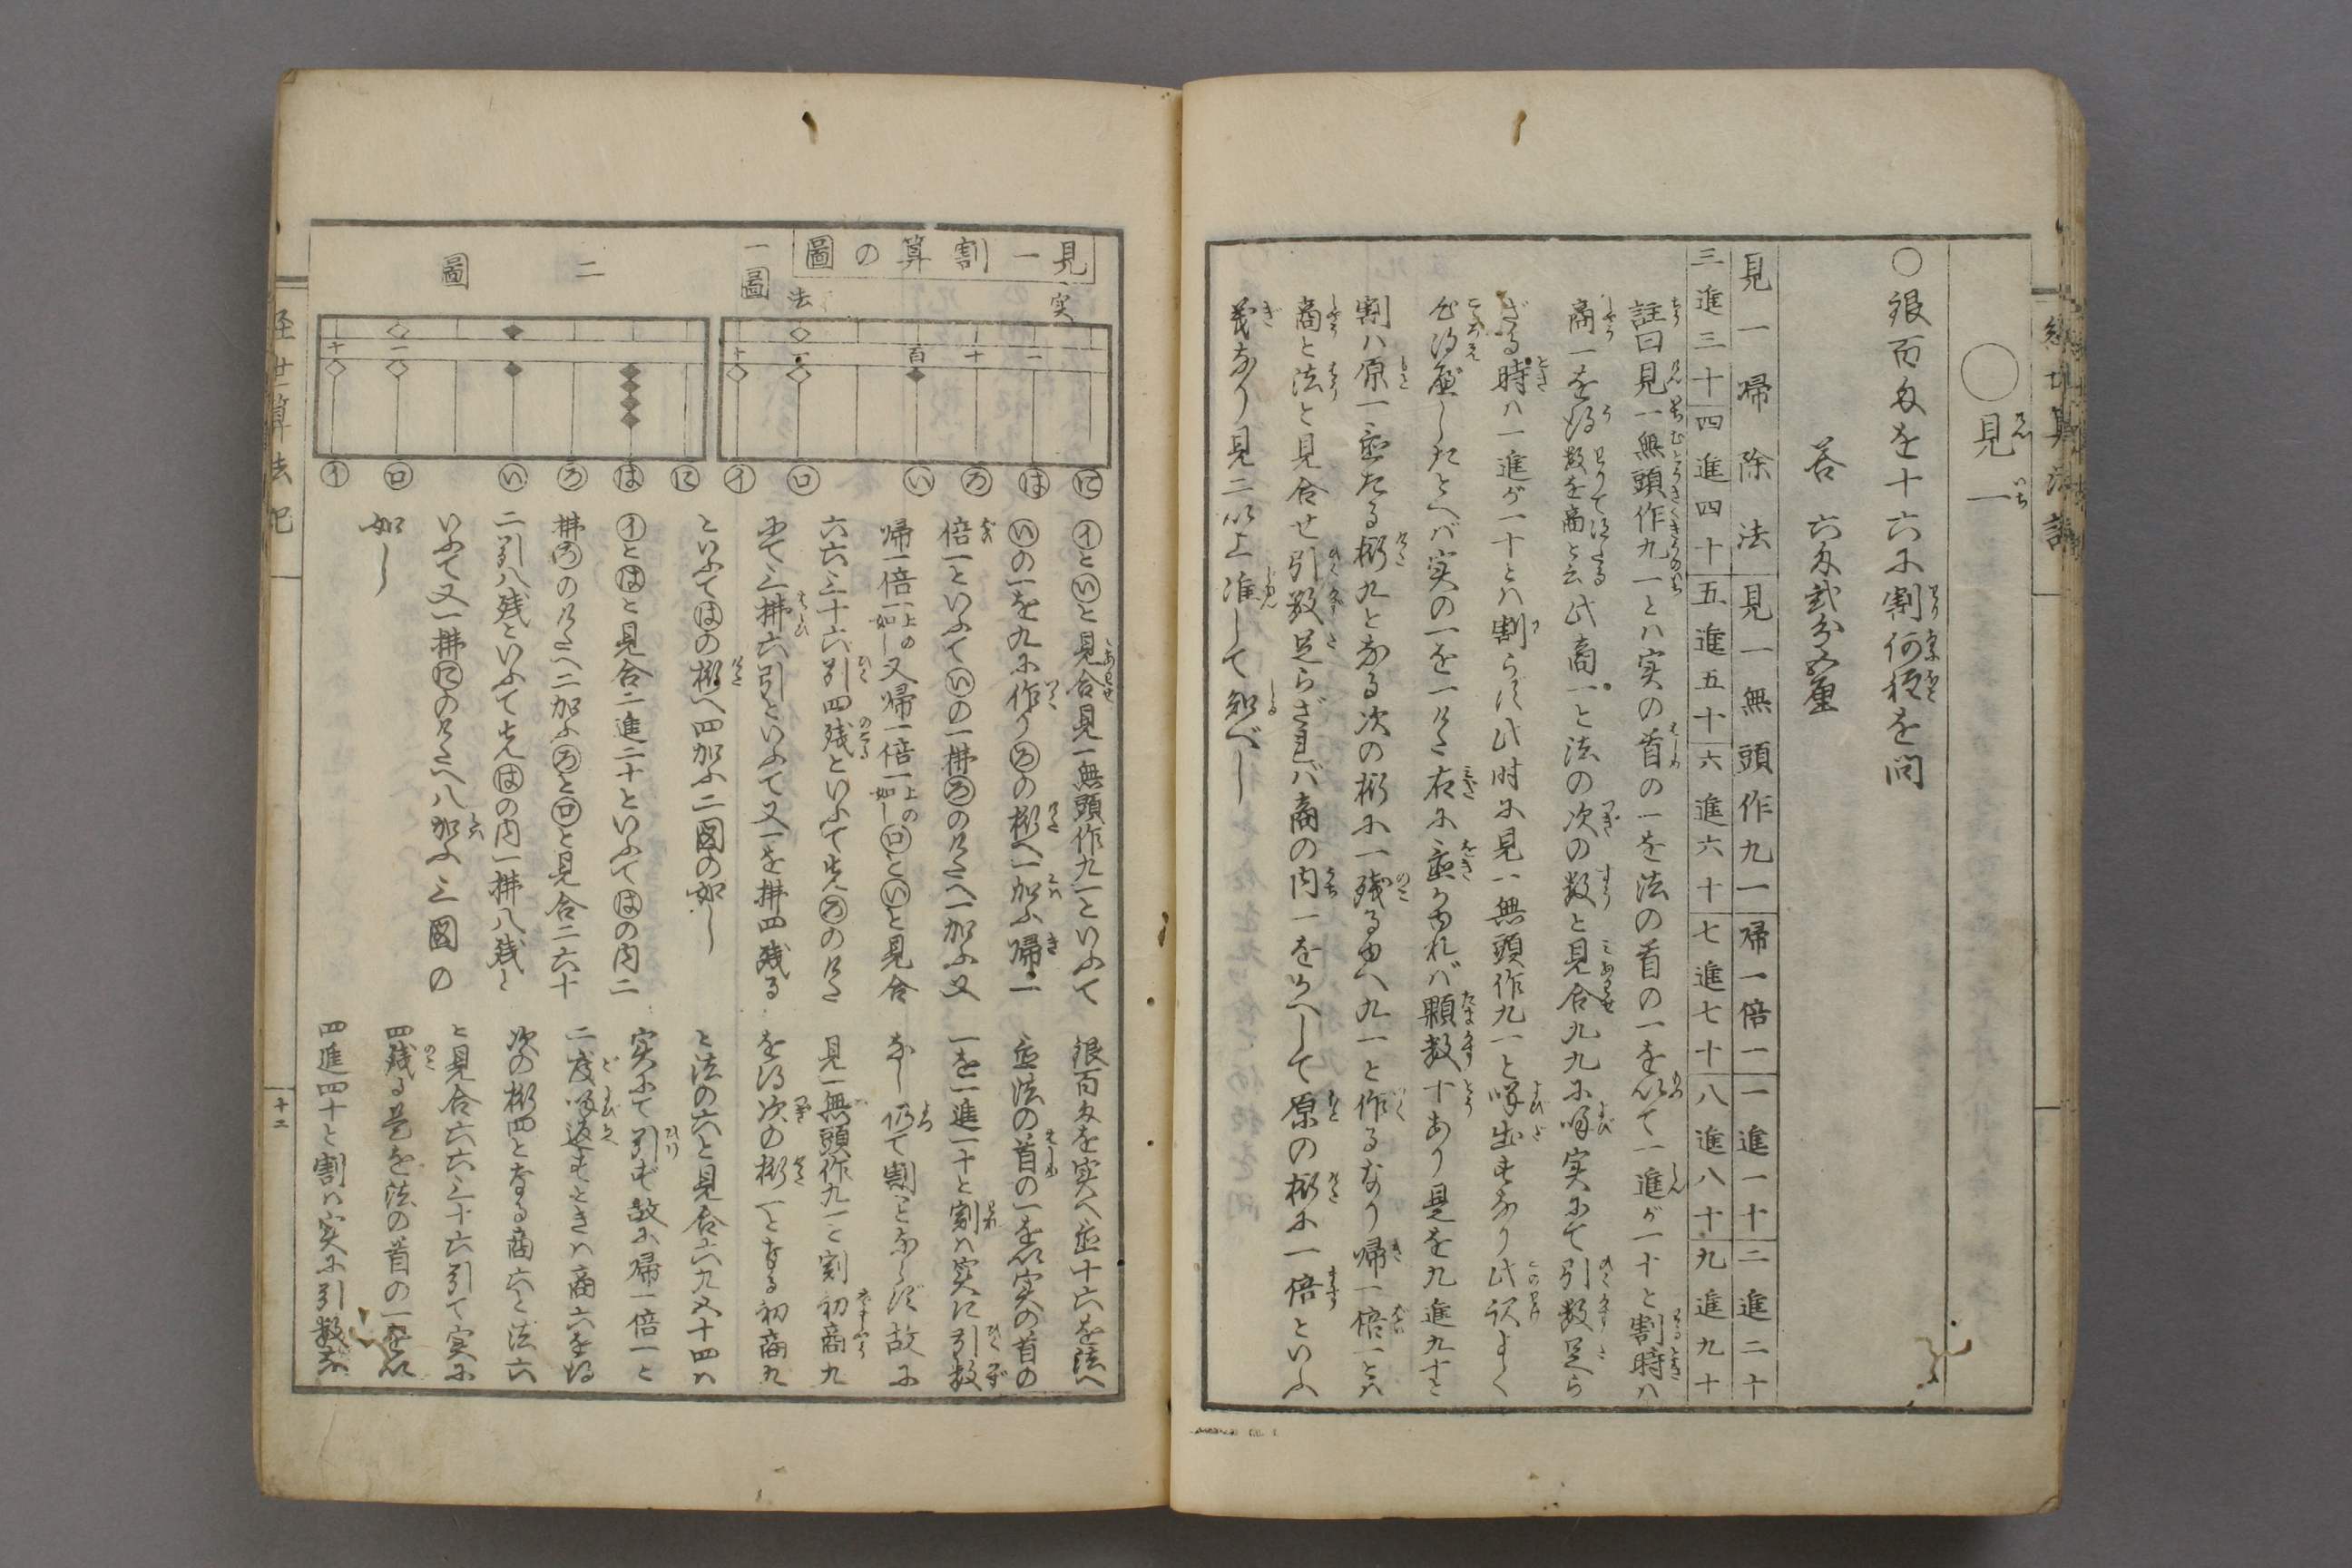 ○見一
○銀百匁を十六に割何程を問
答 六匁弐分五厘
見一帰除法 見一無頭作九一 帰一倍一 一進一十 二進二十
三進三十 四進四十 五進五十 六進六十 七進七十 八進八十 九進九十
註曰見一無頭作九一とハ実の首の一を法の首の一を以て一進が一十と割時ハ
商一を得 此商一と法の次の数と見合九九に呼実にて引数足ら
ざる時ハ一進が一十とハ割らず此時に見一無頭作九一と呼出すなり此訳よく
心得置べしたとへバ実の一を一けた右に置かゆれバ顆数十あり是を九進九十と
割ハ原一置たる桁九となる次の桁に一残るゆへ九一と作るなり帰一倍一とハ
商と法と見合せ引数足らざれバ商の内一をかへして原の桁に一倍といふ
義なり見二以上准して知べし
見一割算の圖
一圖
二圖
実
法
百 十 一
一 十
一 十
に は ろ い ロ イ
に は ろ い ロ イ
イといと見合見一無頭作九一といふて
いの一を九に作りろの桁へ一加ふ帰一
倍一といふていの一拂ろのけたへ一加ふ又
帰一倍一上の如し又帰一倍一上の如しロといと見合
六六三十六引四残といふて先ろのけた
にて三拂六引といふて又一を拂四残る
といふてはの桁へ四加ふ二図の如し
イとはと見合二進二十といふてはの内二
拂ろのけたへ二加ふろとロと見合二六十
二引八残といふて先はの内一拂八残と
いふて又一拂にのけたへ八加ふ三図の
如し
銀百匁を実へ置十六を法へ
置法の首の一を以実の首の
一を一進一十と割ハ実に引数
なし仍て割ことならず故に
見一無頭作九一と割初商九
を得次の桁一となる初商九
と法の六と見合六九五十四ハ
実にて引けず故に帰一倍一と
二度呼返すときハ商六を得
次の桁四となる商六と法六
と見合六六三十六引て実に
四残る是を法の首の一を以
四進四十と割ハ実に引数な
十二